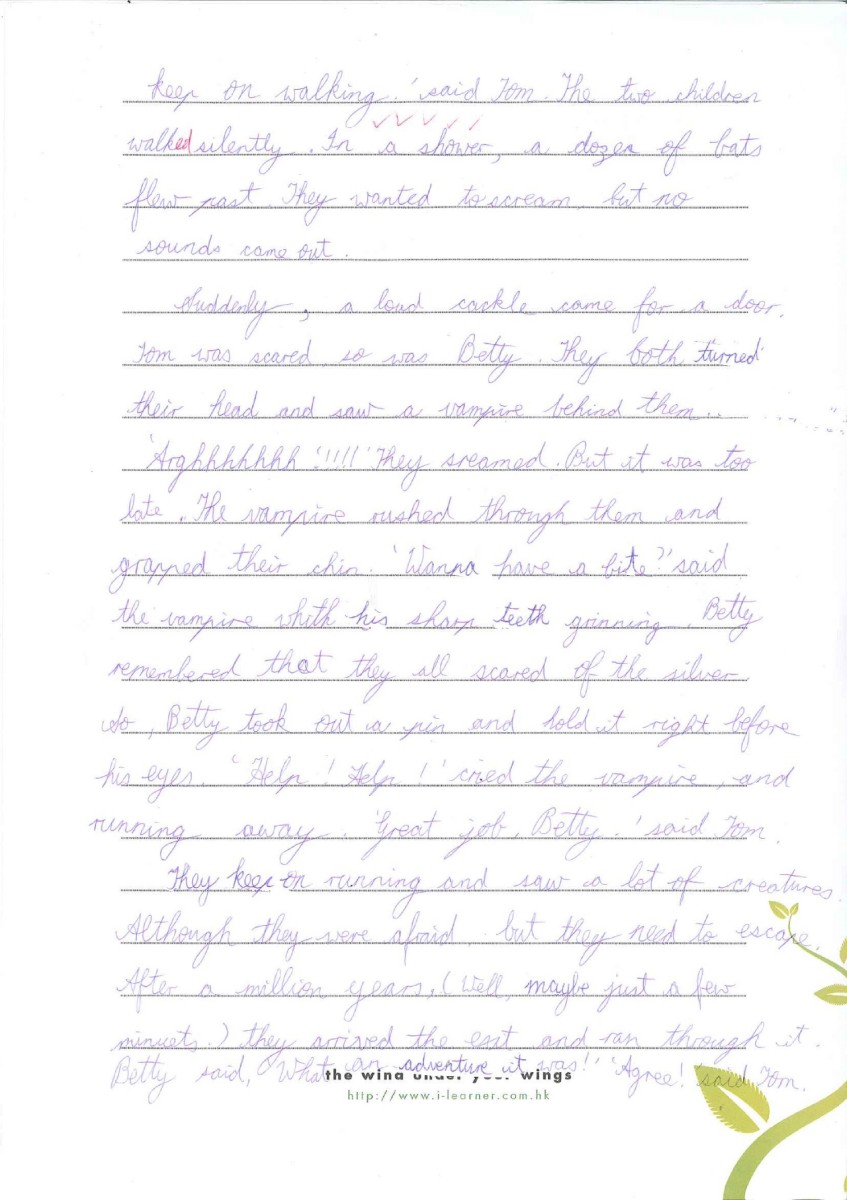 keep on walking.' said Tom. The two children
walked silently. In a shower, a dozen of bats
flew past. They wanted to scream, but no
sounds came out.
Suddenly, a loud cackle came for a door.
Tom was scared, so was Betty. They both turned
their head and saw a vampire behind them..
'Arghhhhhhh '!!!!' They sreamed. But it was too
late. The vampire rushed through them and
grapped their chin. 'Wanna have a bite?' said
the vampire whith his sharp teeth grinning. Betty
remembered that they all scared of the silver.
So, Betty took out a pin and hold it right before
his eyes. 'Help! Help!' cried the vampire, and
running away. 'Great job, Betty.' said Tom.
They keep on running and saw a lot of creatures.
Although they were afraid, but they need to escape.
After a million years, (Well, maybe just a few
minuets.) they arrived the exit and ran through it.
Betty said, 'What an adventure it was!' 'Agree!' said Tom.
the wind under your wings
http://www.i-learner.com.hk